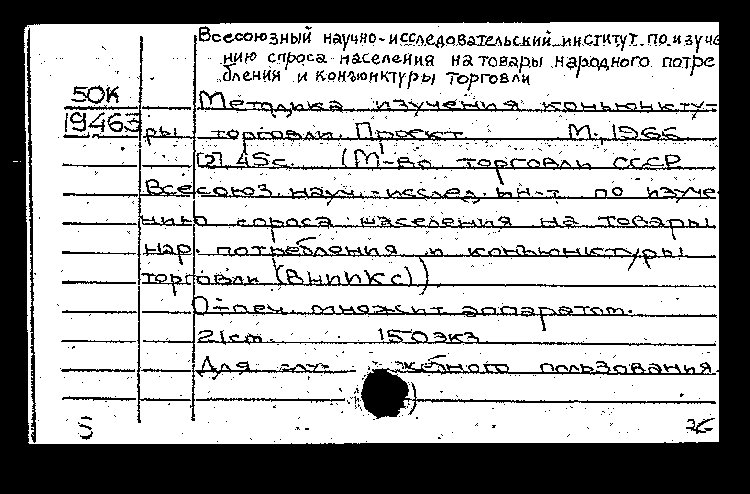 Всесоюзный научно-исследовательский институт по изуче
нию спроса населения на товары народного потре
бления и конъюнктуры торговли
50К
19463
Методика изучения конъюнкту-
ры торговли. Проект М., 1966
[2], 45с. (М-во торговли СССР
Всесоюз. науч.-исслед. ин-т по изуче
нию спроса населения на товары
нар. потребления и конъюнктуры
торговли (ВНИИКС))
Отпеч. множит. аппаратом.
21см. 150экз
Для служебного пользования